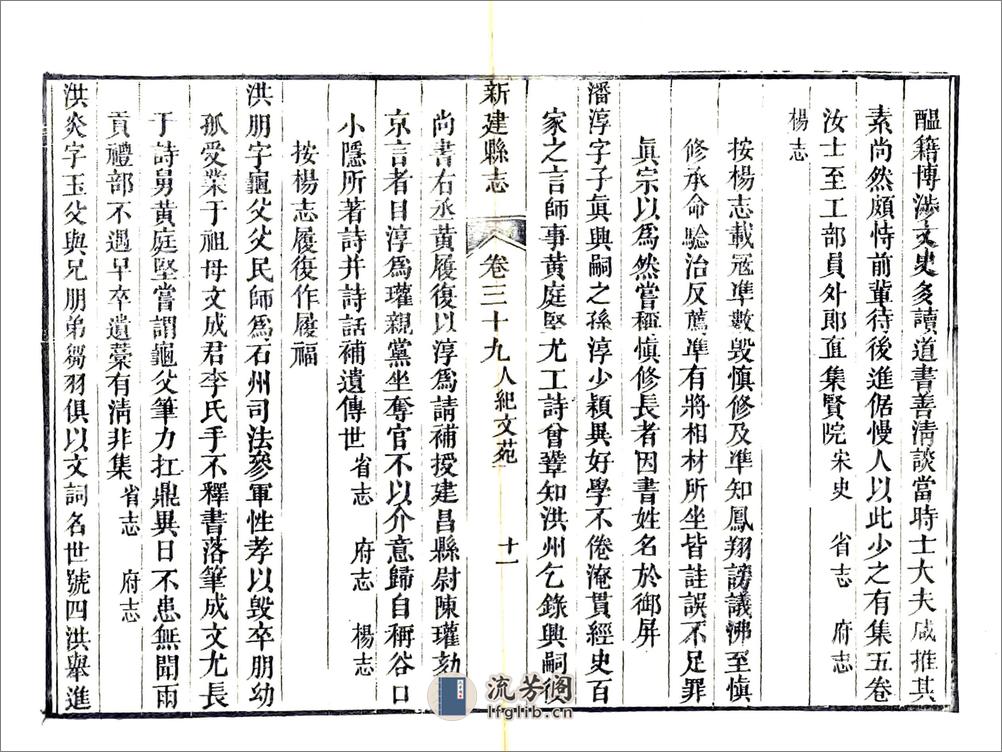 醞籍博渉文史多讀道書善淸談當時士大夫咸推其
素尚然頗恃前輩待後進倨慢人以此少之有集五卷
汝士至工部員外郎直集賢院宋史 省志 府志
楊志
按楊志載冦凖數毁愼修及凖知鳳翔謗議沸至愼
修承命驗治反薦凖有將相材所坐皆詿誤不足罪
眞宗以爲然嘗稱愼修長者因書姓名於御屏
潘淳字子眞興嗣之孫淳少穎異好學不倦淹貫經史百
家之言師事黃庭堅尤工詩曾鞏知洪州乞錄興嗣後
新建縣志 卷三十九 人紀文苑 十一
尚書右丞黃履復以淳爲請補授建昌縣尉陳瓘劾
京言者目淳爲瓘親黨坐奪官不以介意歸自稱谷口
小隱所著詩并詩話補遺傳世 省志 府志 楊志
按楊志履復作履福
洪朋字龜父父民師爲石州司法參軍性孝以毁卒朋幼
孤受業于祖母文成君李氏手不釋書落筆成文尤長
于詩舅黃庭堅嘗謂龜父筆力扛鼎異日不患無聞兩
貢禮部不遇早卒遺藁有淸非集 省志 府志
洪炎字玉父與兄朋弟芻羽俱以文詞名世號四洪舉進
流芳阁
lfglib.cn